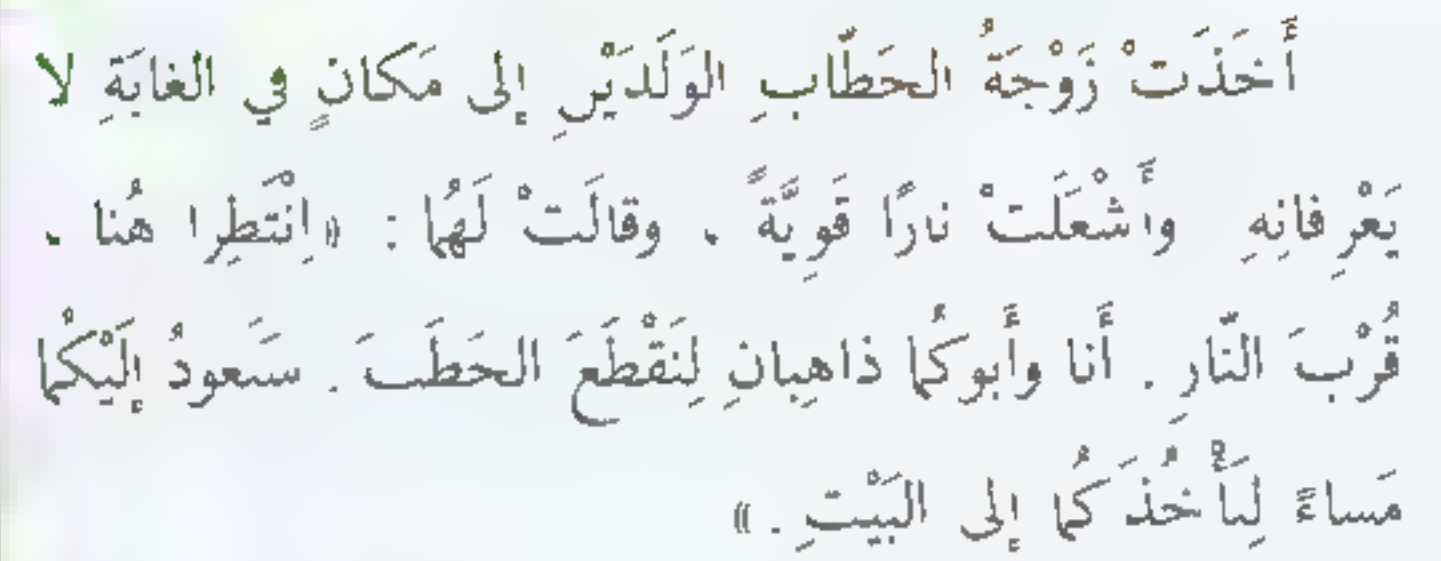 أَخَذَتْ زَوْجَةُ الحَطّابِ الوَلَدَيْنِ إلى مَكانٍ في الغابَةِ لا
يَعْرِفانِهِ وأَشْعَلَتْ نارًا قَوِيَّةً . وقالَتْ لَهُما : «اِنْتَظِرا هُنا .
قُرْبَ النّارِ . أَنا وأَبوكُما ذاهِبانِ لِنَقْطَعَ الحَطَبَ . سَنَعودُ إلَيْكُما
مَساءً لِنَأْخُذَكُما إلى البَيْتِ . »